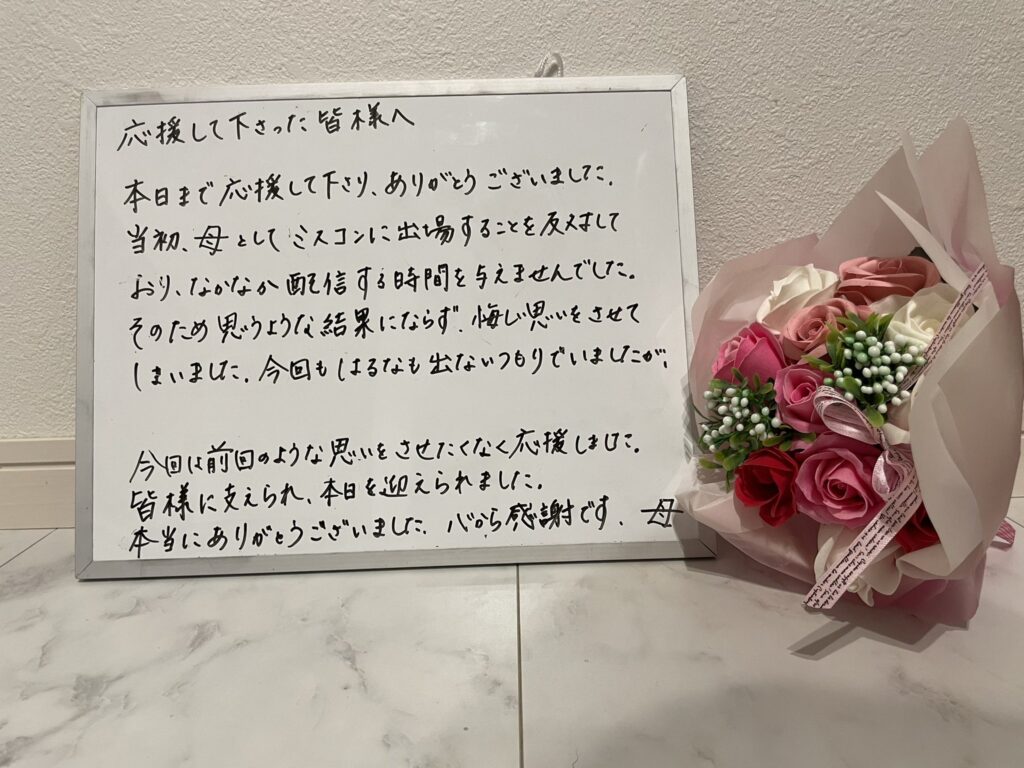 応援して下さった皆様へ
本日まで応援して下さり、ありがとうございました。
当初、母としてミスコンに出場することを反対して
おり、なかなか配信する時間を与えませんでした。
そのため思うような結果にならず、悔しい思いをさせて
しまいました。今回もはるなも出ないつもりでいましたが、
今回は前回のような思いをさせたくなく応援しました。
皆様に支えられ、本日を迎えられました。
本当にありがとうございました。心から感謝です。 母